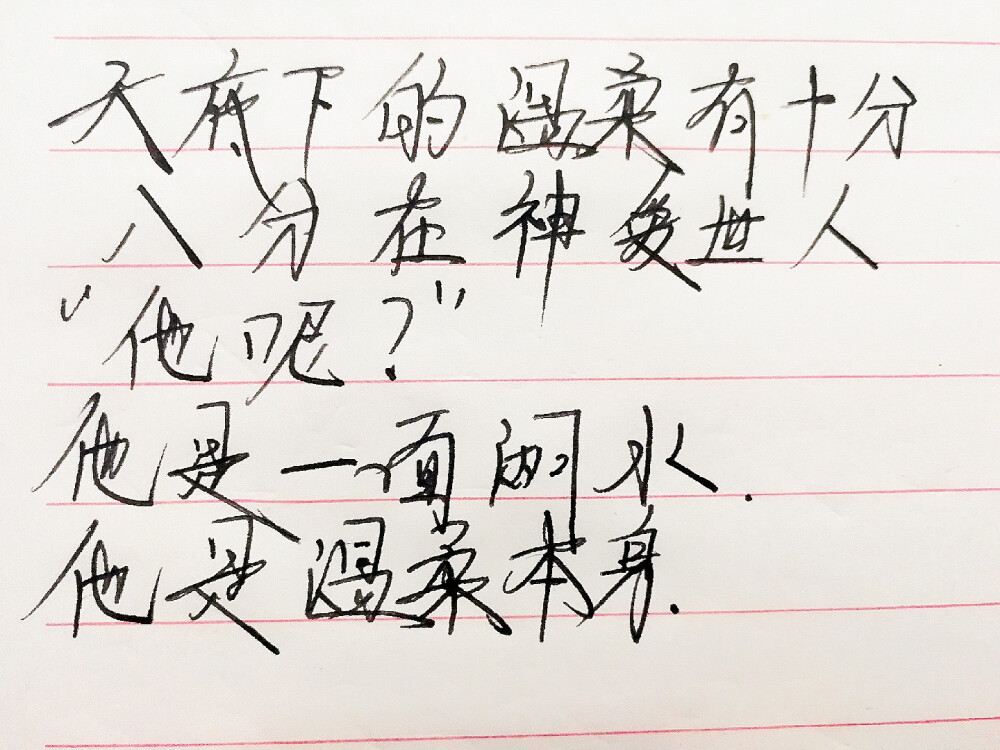 天底下的温柔有十分
八分在神爱世人
“他呢?”
他是一面湖水.
他是温柔本身.